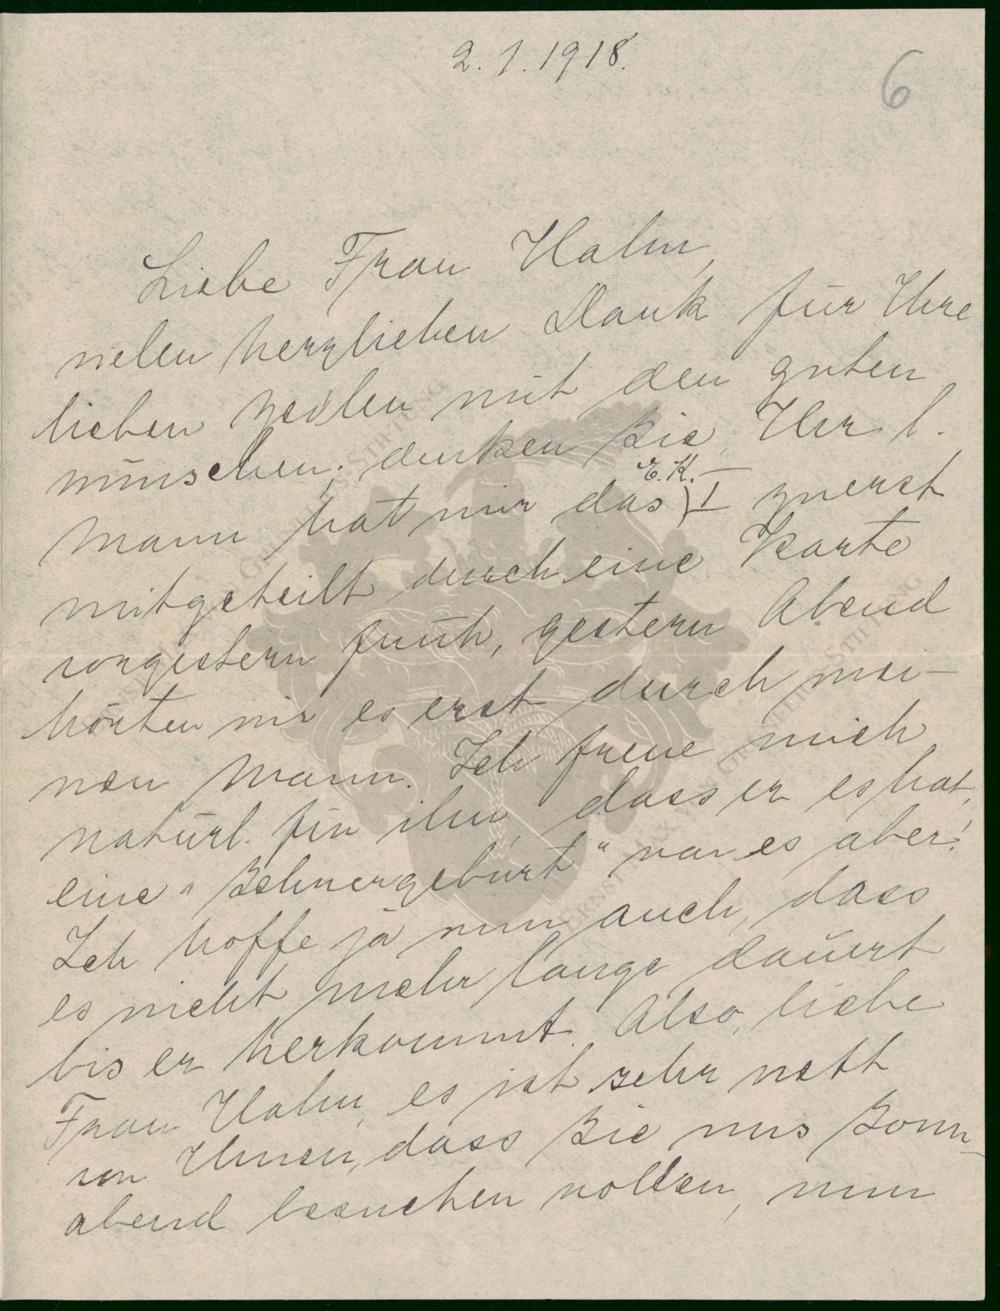 2.1.1918.
6
Liebe Frau Hahn,
vielen herzlichen Dank für Ihre
lieben Zeilen mit den guten
Wünschen; denken Sie, Ihr l.
E.K.
Mann hat mir das I zuerst
mitgeteilt durch eine Karte
vorgestern früh, gestern Abend
hörten wir es erst durch mei-
nen Mann. Ich freue mich
natürl. für ihn, dass er es hat,
eine "Schwergeburt" war es aber!
Ich hoffe ja nun auch, dass
es nicht mehr lange dauert
bis er herkommt. Also, liebe
Frau Hahn, es ist sehr nett
von Ihnen, dass Sie uns Sonn-
abend besuchen wollen, nun